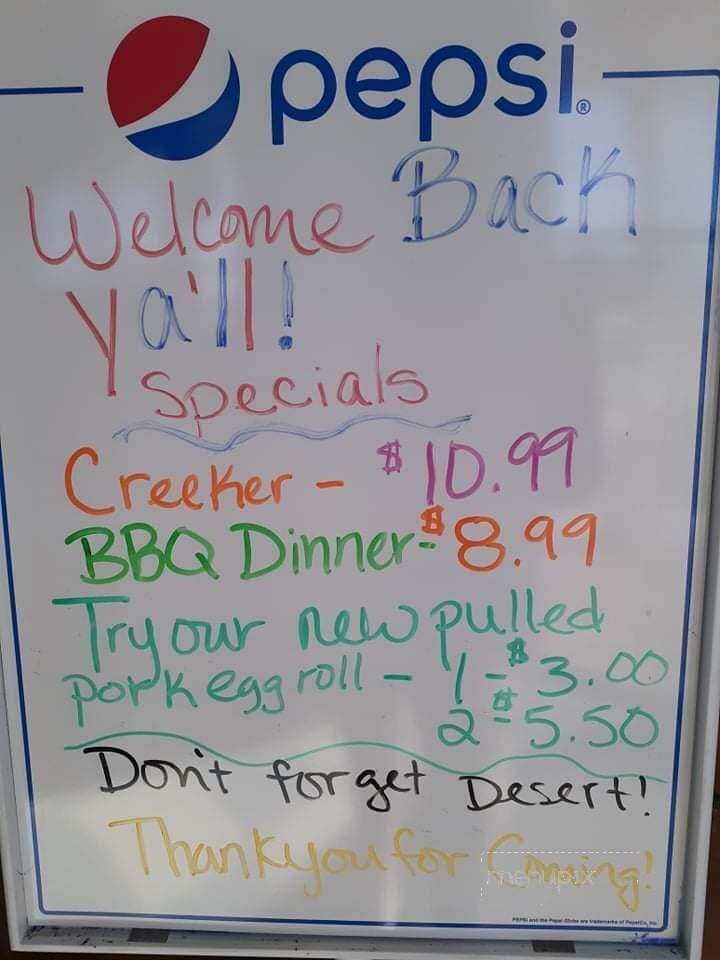 pepsi®
Welcome Back
Ya'll!
Specials
Creeker - $10.99
BBQ Dinner- $8.99
Try our new pulled
pork egg roll - 1 - $3.00
2 - $5.50
Don't forget Desert!
Thankyou for Coming!
menupix
PEPSI and the Pepsi Globe are trademarks of PepsiCo, Inc.